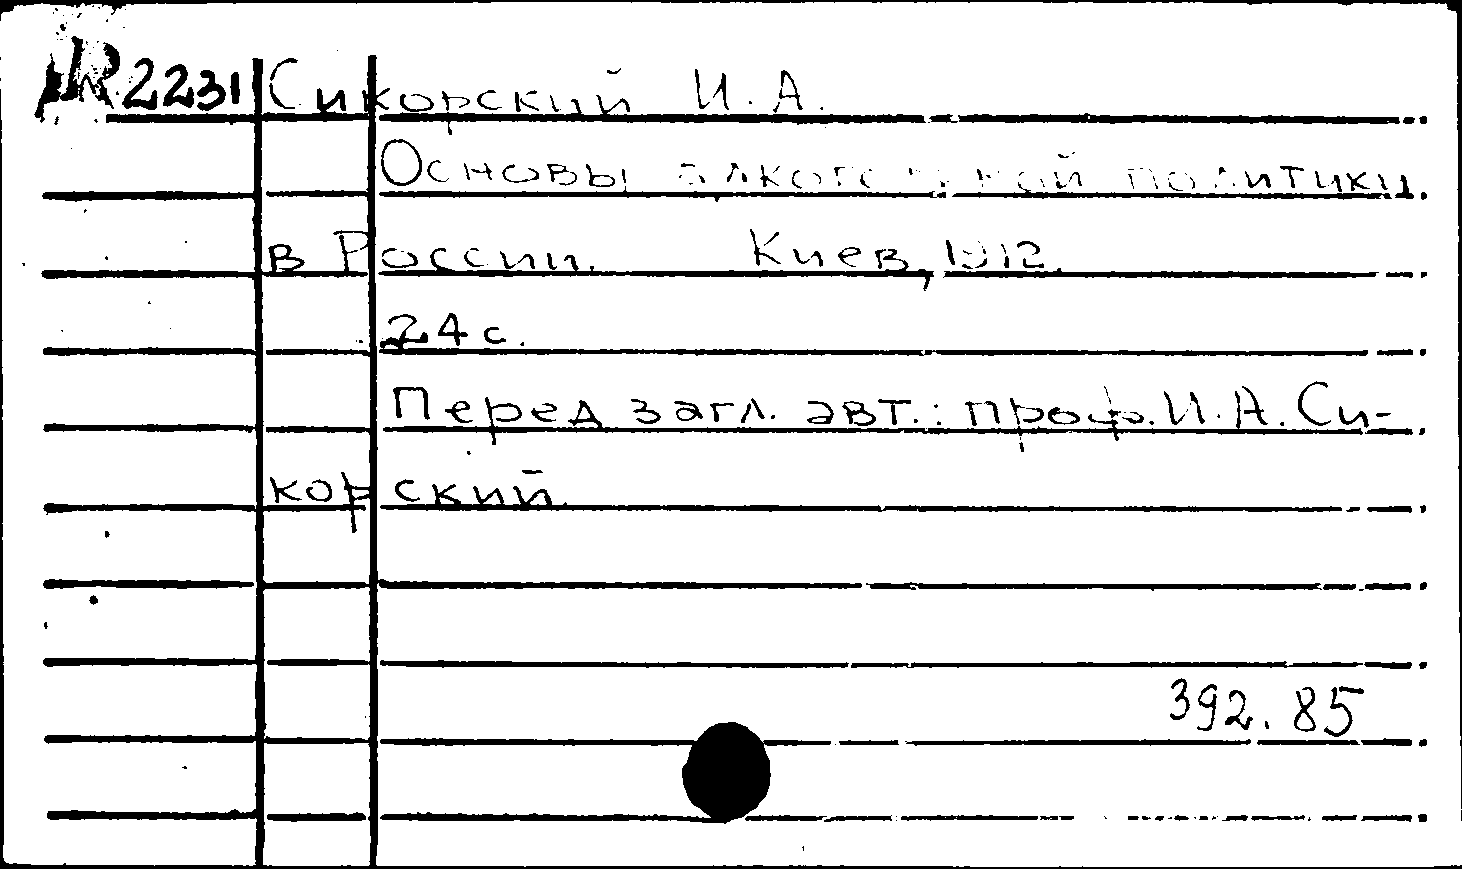 2231 Сикорский И. А.
Основы алкогольной политики
в России. Киев, 1912.
24 с.
Перед загл. авт.: проф. И. А. Си-
корский.
392.85